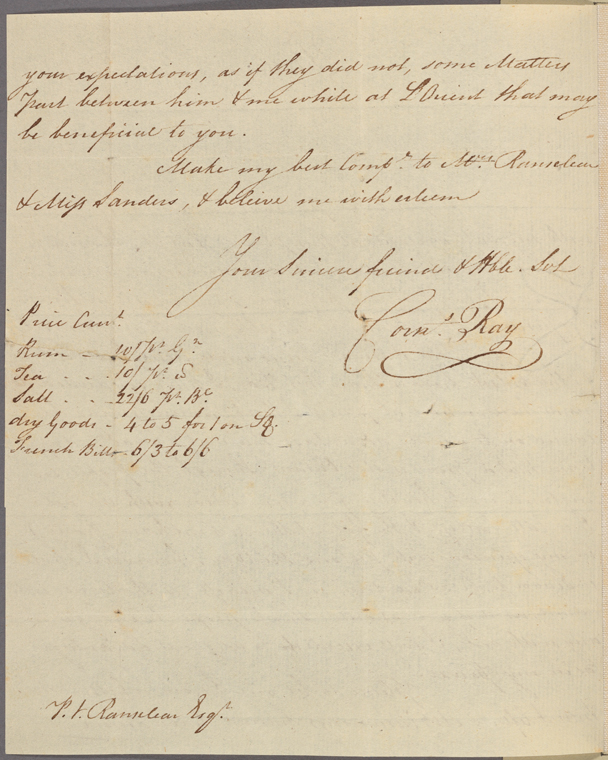 your expectations, as if they did not, some Matters
Past between him & me while at L'Orient that may
be beneficial to you.
Make my best Comps. to Mrs. Ranselear
& Miss Sanders, & believe me with esteem
Your Sincere friend & Hble. Svt
Corns. Ray
Price Currt.
Rum - - 10/ pr. Gn.
Tea - - 10/ pr. lb
Salt - - 22/6 pr. Bl.
dry Goods - 4 to 5 for 1 on Stg.
French Bills - 6/3 to 6/6
P. V. Ranselear Esqr.